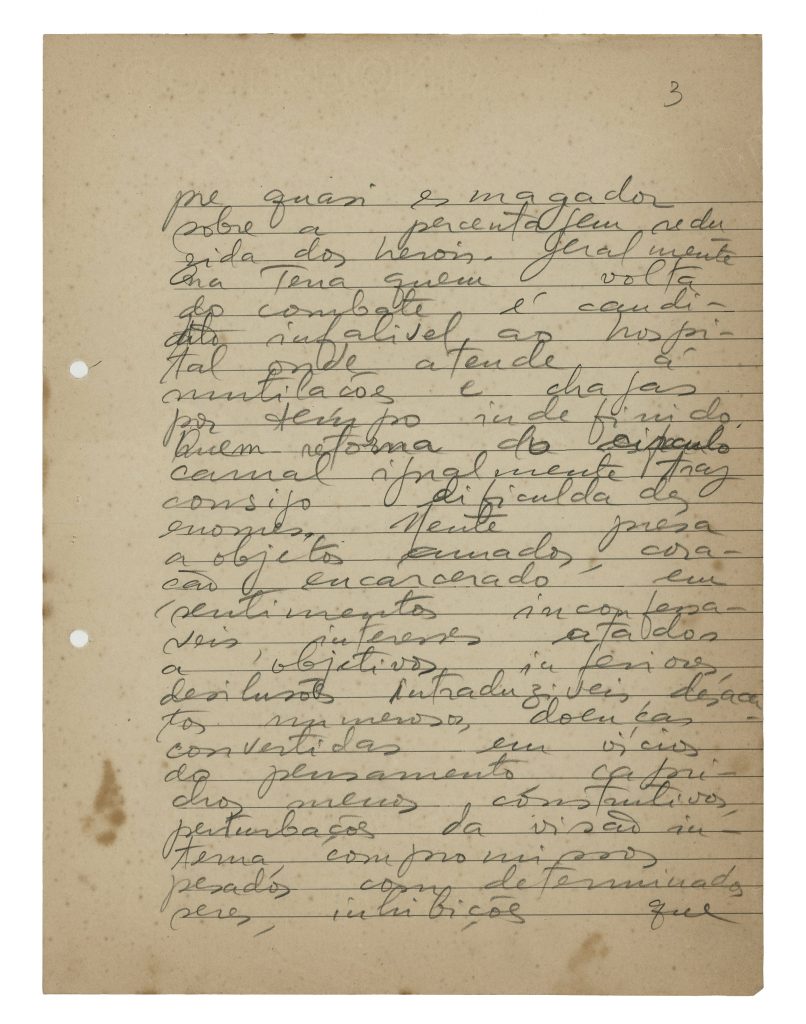 3
pre quasi esmagador
sobre a percentagem redu
zida dos herois. Geralmente
na Terra quem volta
do combate é candi-
dato infalivel ao hospi-
tal onde atende á
mutilações e chagas
por tempo indefinido.
Quem retorna do circulo
carnal igualmente traz
consigo dificuldades
enormes. Mente presa
a objetos amados, cora-
ção encarcerado em
sentimentos inconfessa-
veis, interesses atados
a objetivos inferiores,
desilusões intraduziveis desaca
tos numerosos, doenças -
convertidas em vícios
do pensamento capri-
chos menos construtivos,
perturbações da visão in-
terna, compromissos
pesados com determinados
seres, inhibições que